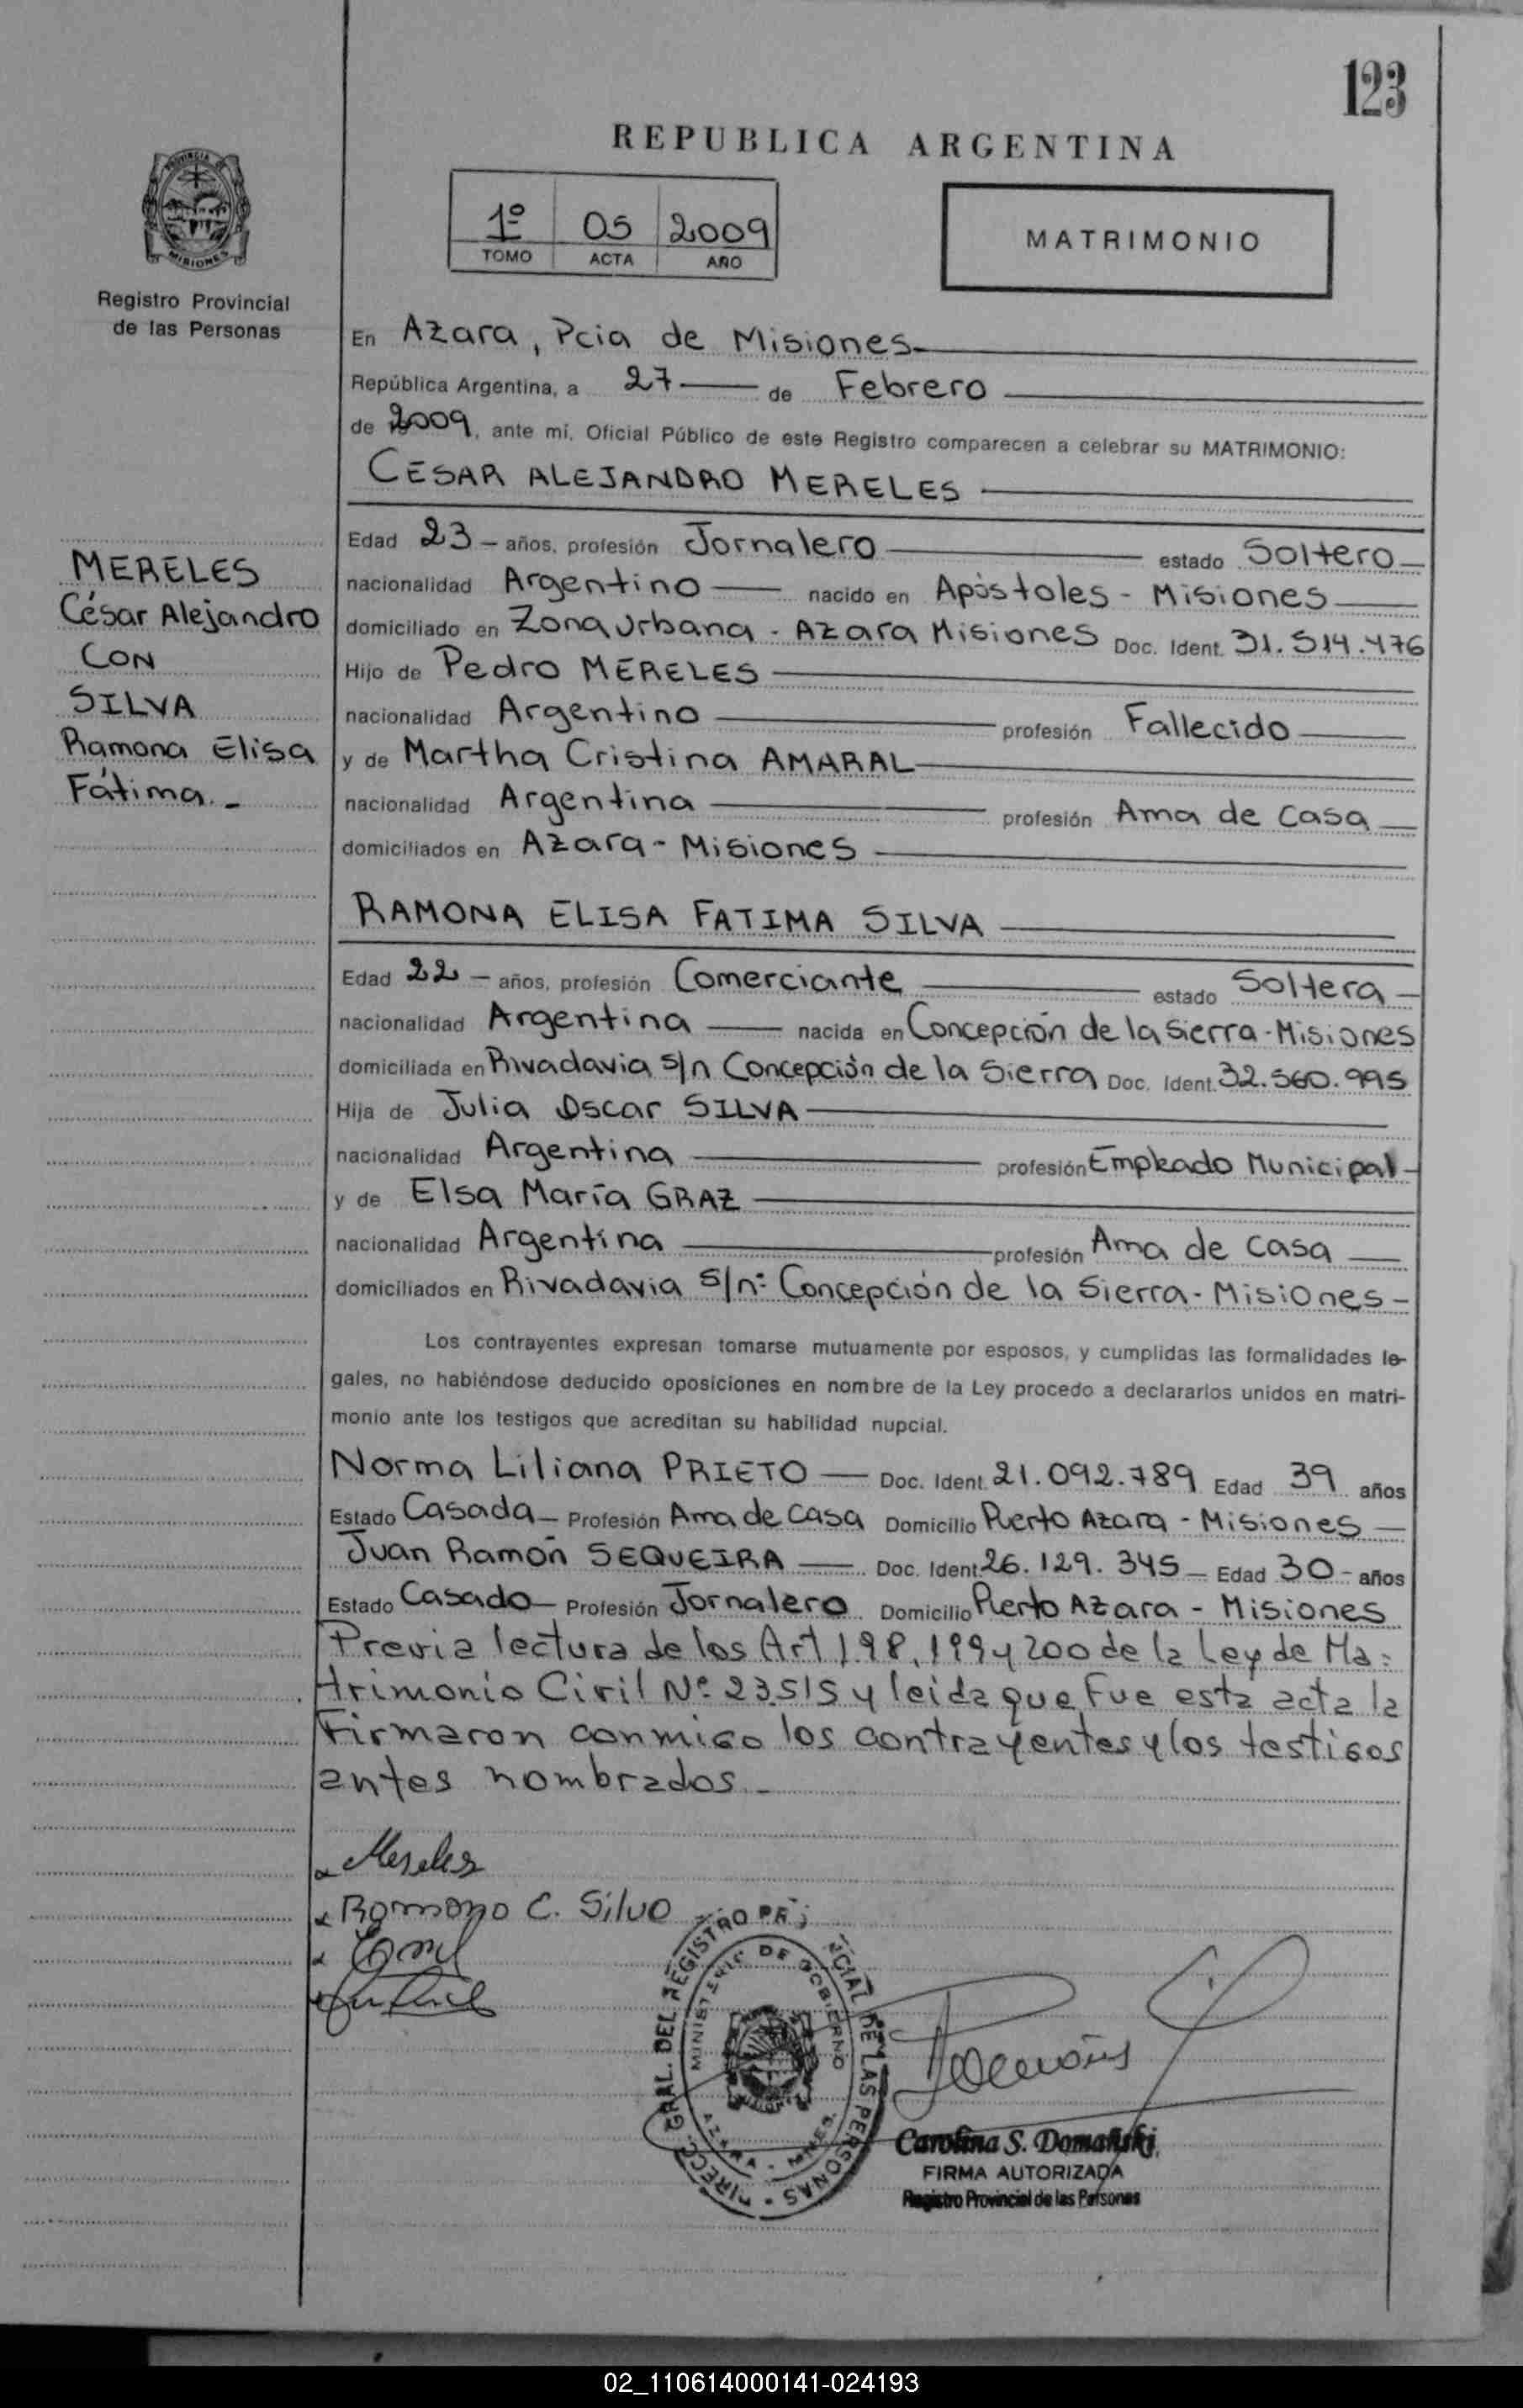 123
REPUBLICA ARGENTINA
PROVINCIA DE
MISIONES
Registro Provincial
de las Personas
1º 05 2009
TOMO ACTA AÑO
MATRIMONIO
En Azara, Pcia de Misiones
República Argentina, a 27 de Febrero
de 2009, ante mí, Oficial Público de este Registro comparecen a celebrar su MATRIMONIO:
CÉSAR ALEJANDRO MERELES
MERELES
César Alejandro
CON
SILVA
Ramona Elisa
Fátima.-
Edad 23 - años, profesión Jornalero estado Soltero
nacionalidad Argentino nacido en Apóstoles - Misiones
domiciliado en Zona Urbana - Azara Misiones Doc. Ident. 31.514.476
Hijo de Pedro MERELES
nacionalidad Argentino profesión Fallecido
y de Martha Cristina AMARAL
nacionalidad Argentina profesión Ama de Casa
domiciliados en Azara - Misiones
RAMONA ELISA FATIMA SILVA
Edad 22 - años, profesión Comerciante estado Soltera
nacionalidad Argentina nacida en Concepción de la Sierra - Misiones
domiciliada en Rivadavia s/n Concepción de la Sierra Doc. Ident. 32.560.995
Hija de Julia Oscar SILVA
nacionalidad Argentina profesión Empleado Municipal
y de Elsa María GRAZ
nacionalidad Argentina profesión Ama de Casa
domiciliados en Rivadavia s/nº Concepción de la Sierra - Misiones -
Los contrayentes expresan tomarse mutuamente por esposos, y cumplidas las formalidades le-
gales, no habiéndose deducido oposiciones en nombre de la Ley procedo a declararlos unidos en matri-
monio ante los testigos que acreditan su habilidad nupcial.
Norma Liliana PRIETO Doc. Ident. 21.092.789 Edad 39 años
Estado Casada Profesión Ama de Casa Domicilio Puerto Azara - Misiones
Juan Ramón SEQUEIRA Doc. Ident. 26.129.345 Edad 30 - años
Estado Casado Profesión Jornalero Domicilio Puerto Azara - Misiones
Previa lectura de los Art 198, 199 y 200 de la Ley de Ma=
trimonio Civil Nº 23.515 y leida que fue esta acta la
Firmaron conmigo los contrayentes y los testigos
antes nombrados.-
Mereles
Ramona E. Silva
DIRECC. GRAL. DEL REGISTRO PR CIAL DE LAS PERSONAS
MINISTERIO DE GOBIERNO
AZARA - MNES.
Carolina S. Domañski
FIRMA AUTORIZADA
Registro Provincial de las Personas
02_110614000141-024193